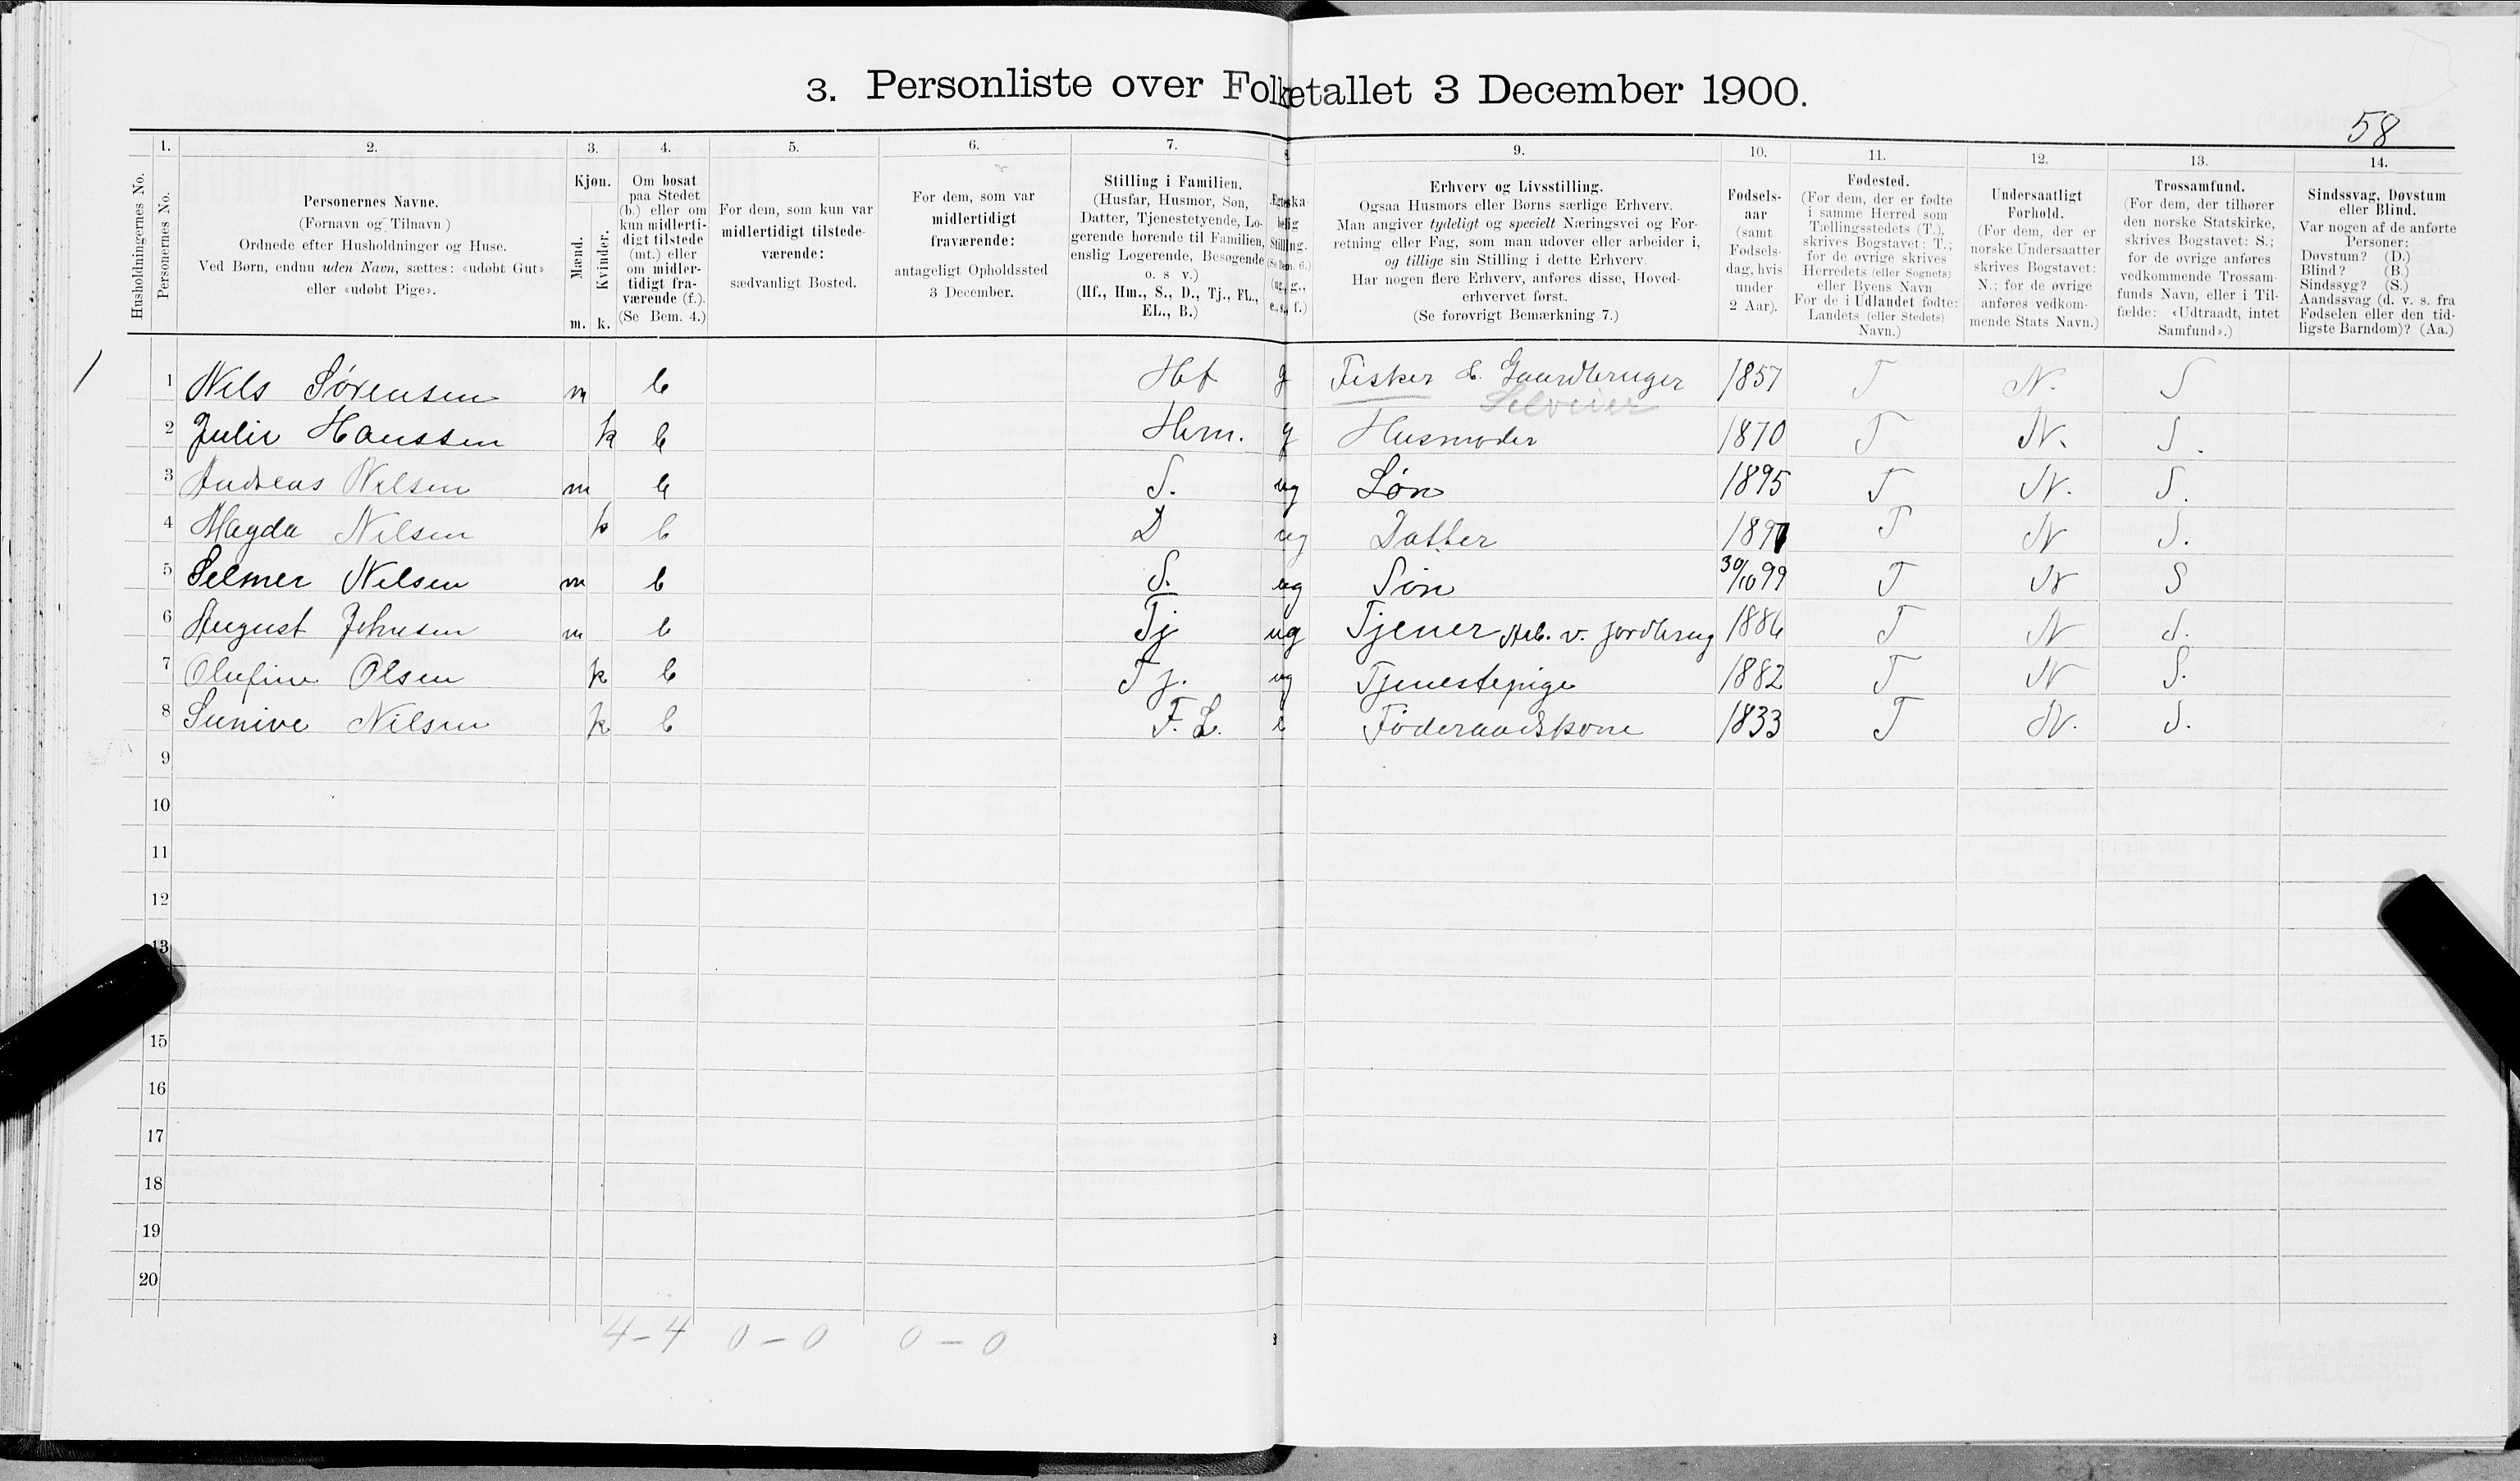 3. Personliste over Folketallet 3 December 1900.
58
Husholdningernes No.
1.
Personernes No.
2.
Personernes Navne.
(Fornavn og Tilnavn)
Ordnede efter Husholdninger og Huse.
Ved Børn, endnu uden Navn, sættes: «udøbt Gut»
eller «udøbt Pige».
3.
Kjøn.
Mænd.
Kvinder.
m. k.
4.
Om bosat
paa Stedet
(b.) eller om
kun midlerti-
digt tilstede
(mt.) eller
om midler-
tidigt fra-
værende (f.).
(Se Bem. 4.)
5.
For dem, som kun var
midlertidigt tilstede-
værende:
sædvanligt Bosted.
6.
For dem, som var
midlertidigt
fraværende:
antageligt Opholdssted
3 December.
7.
Stilling i Familien.
(Husfar, Husmor, Søn,
Datter, Tjenestetyende, Lo-
gerende hørende til Familien,
enslig Logerende, Besøgende
o. s v.)
(Hf., Hm., S., D., Tj., FL.,
EL., B.)
9.
Erhverv og Livsstilling.
Ogsaa Husmors eller Børns særlige Erhverv.
Man angiver tydeligt og specielt Næringsvei og For-
retning eller Fag, som man udøver eller arbeider i,
og tillige sin Stilling i dette Erhverv.
Har nogen flere Erhverv, anføres disse, Hoved-
erhvervet først.
(Se forøvrigt Bemærkning 7.)
10.
Fødsels-
aar
(samt
Fødsels-
dag, hvis
under
2 Aar).
11.
Fødested.
(For dem, der er fødte
i samme Herred som
Tællingsstedets (T.),
skrives Bogstavet: T.;
for de øvrige skrives
Herredets (eller Sognets)
eller Byens Navn.
For de i Udlandet fødte:
Landets (eller Stedets)
Navn.)
12.
Undersaatligt
Forhold.
(For dem, der er
norske Undersaatter
skrives Bogstavet:
N.; for de øvrige
anføres vedkom-
mende Stats Navn.)
13.
Trossamfund.
(For dem, der tilhører
den norske Statskirke,
skrives Bogstavet: S.;
for de øvrige anføres
vedkommende Trossam-
funds Navn, eller i Til-
fælde: «Udtraadt, intet
Samfund».)
14.
Sindssvag, Døvstum
eller Blind.
Var nogen af de anførte
Personer:
Døvstum? (D.)
Blind? (B.)
Sindssyg? (S.)
Aandssvag (d. v. s. fra
Fødselen eller den tid-
ligste Barndom)? (Aa.)
1 1 Nils Sørensen m b Hf g Fisker & Gaardbruger 1857 T N. S
Selveier
2 Julie Hanssen k b Hm. g Husmoder 1870 T N. S.
3 Andreas Nilsen m b S. ug Søn 1895 T N. S.
4 Magda Nilsen k b D ug Datter 1897 T N S.
5 Selmer Nilsen m b S. ug Søn 30/10 99 T N S
6 August Johnsen m b Tj ug Tjener Arb. v. Jordbrug 1886 T N S.
7 Olufine Olsen k b Tj. ug Tjenestepige 1882 T N S.
8 Sunive Nilsen k b F. L. e Føderaadskone 1833 T N. S.
9
10
11
12
13
15
16
17
18
19
20
4-4 0-0 0-0